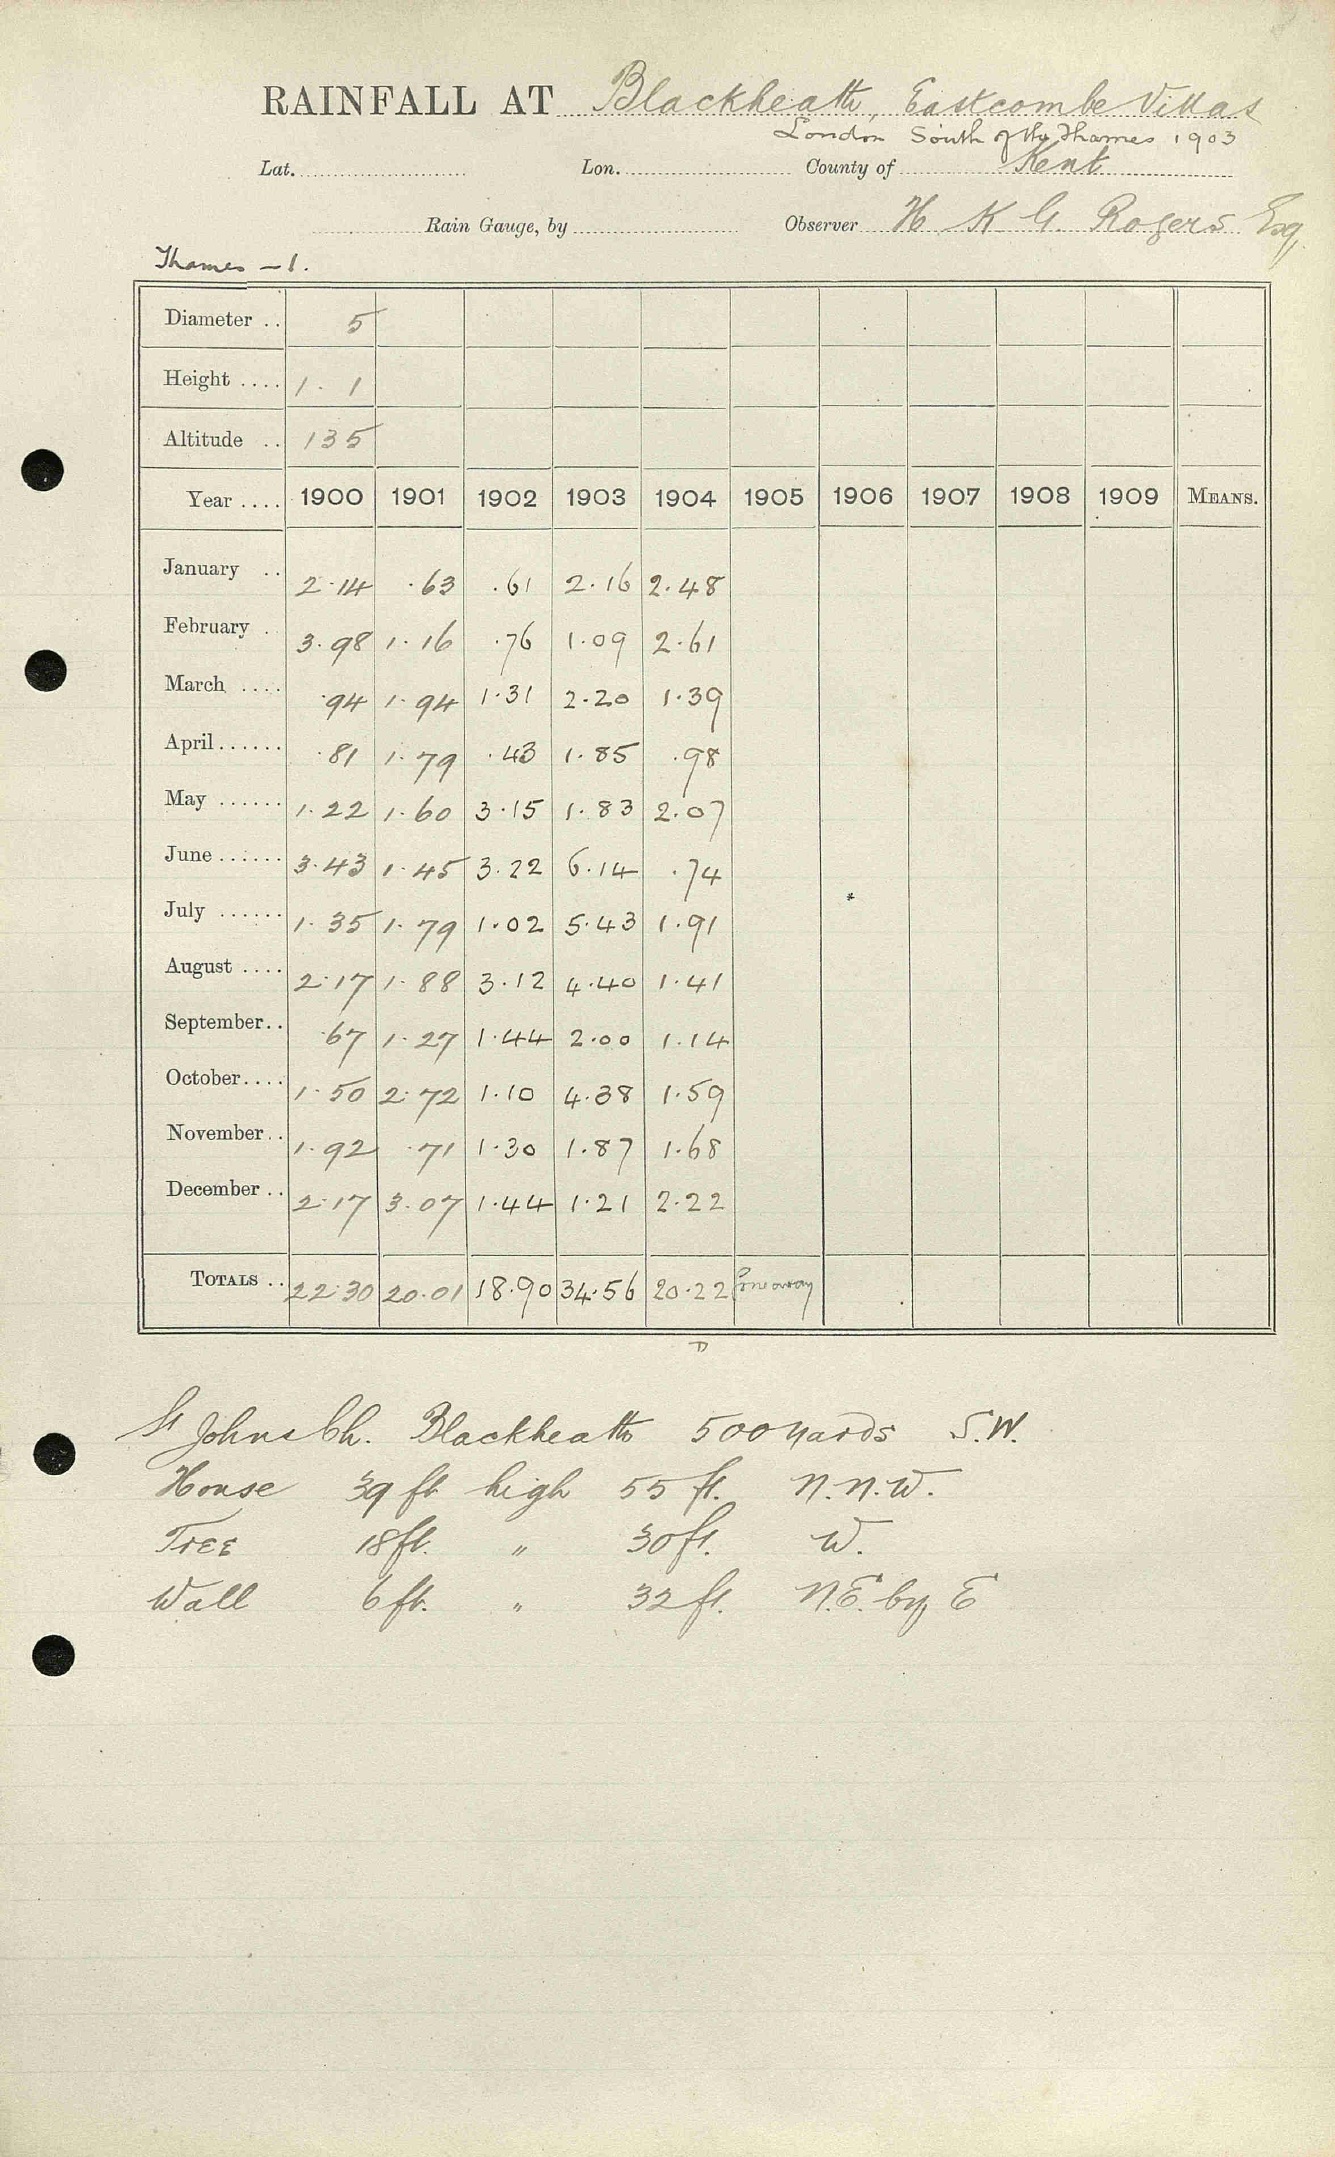 RAINFALL AT Blackheath, Eastcombe Villas
London South of the Thames 1903
Lat. Lon. County of Kent
Rain Gauge, by Observer H K G. Rogers Esq
Thames - 1.
Diameter .. 5
Height .... 1. 1
Altitude .. 135
Year .... 1900 1901 1902 1903 1904 1905 1906 1907 1908 1909 MEANS.
January .. 2.14 .63 .61 2.16 2.48
February . 3.98 1.16 .76 1.09 2.61
March .... .94 1.94 1.31 2.20 1.39
April...... .81 1.79 .43 1.85 .98
May ...... 1.22 1.60 3.15 1.83 2.07
June ...... 3.43 1.45 3.22 6.14 .74
July ...... 1.35 1.79 1.02 5.43 1.91
August .... 2.17 1.88 3.12 4.40 1.41
September.. .67 1.27 1.44 2.00 1.14
October.... 1.50 2.72 1.10 4.38 1.59
November.. 1.92 .71 1.30 1.87 1.68
December .. 2.17 3.07 1.44 1.21 2.22
TOTALS .. 22.30 20.01 18.90 34.56 20.22 Gone away
D
St Johns Ch. Blackheath 500 yards S.W.
House 39 ft high 55 ft. N.N.W.
Tree 18 ft. " 30 ft. W.
Wall 6 ft. " 32 ft. N.E. by E